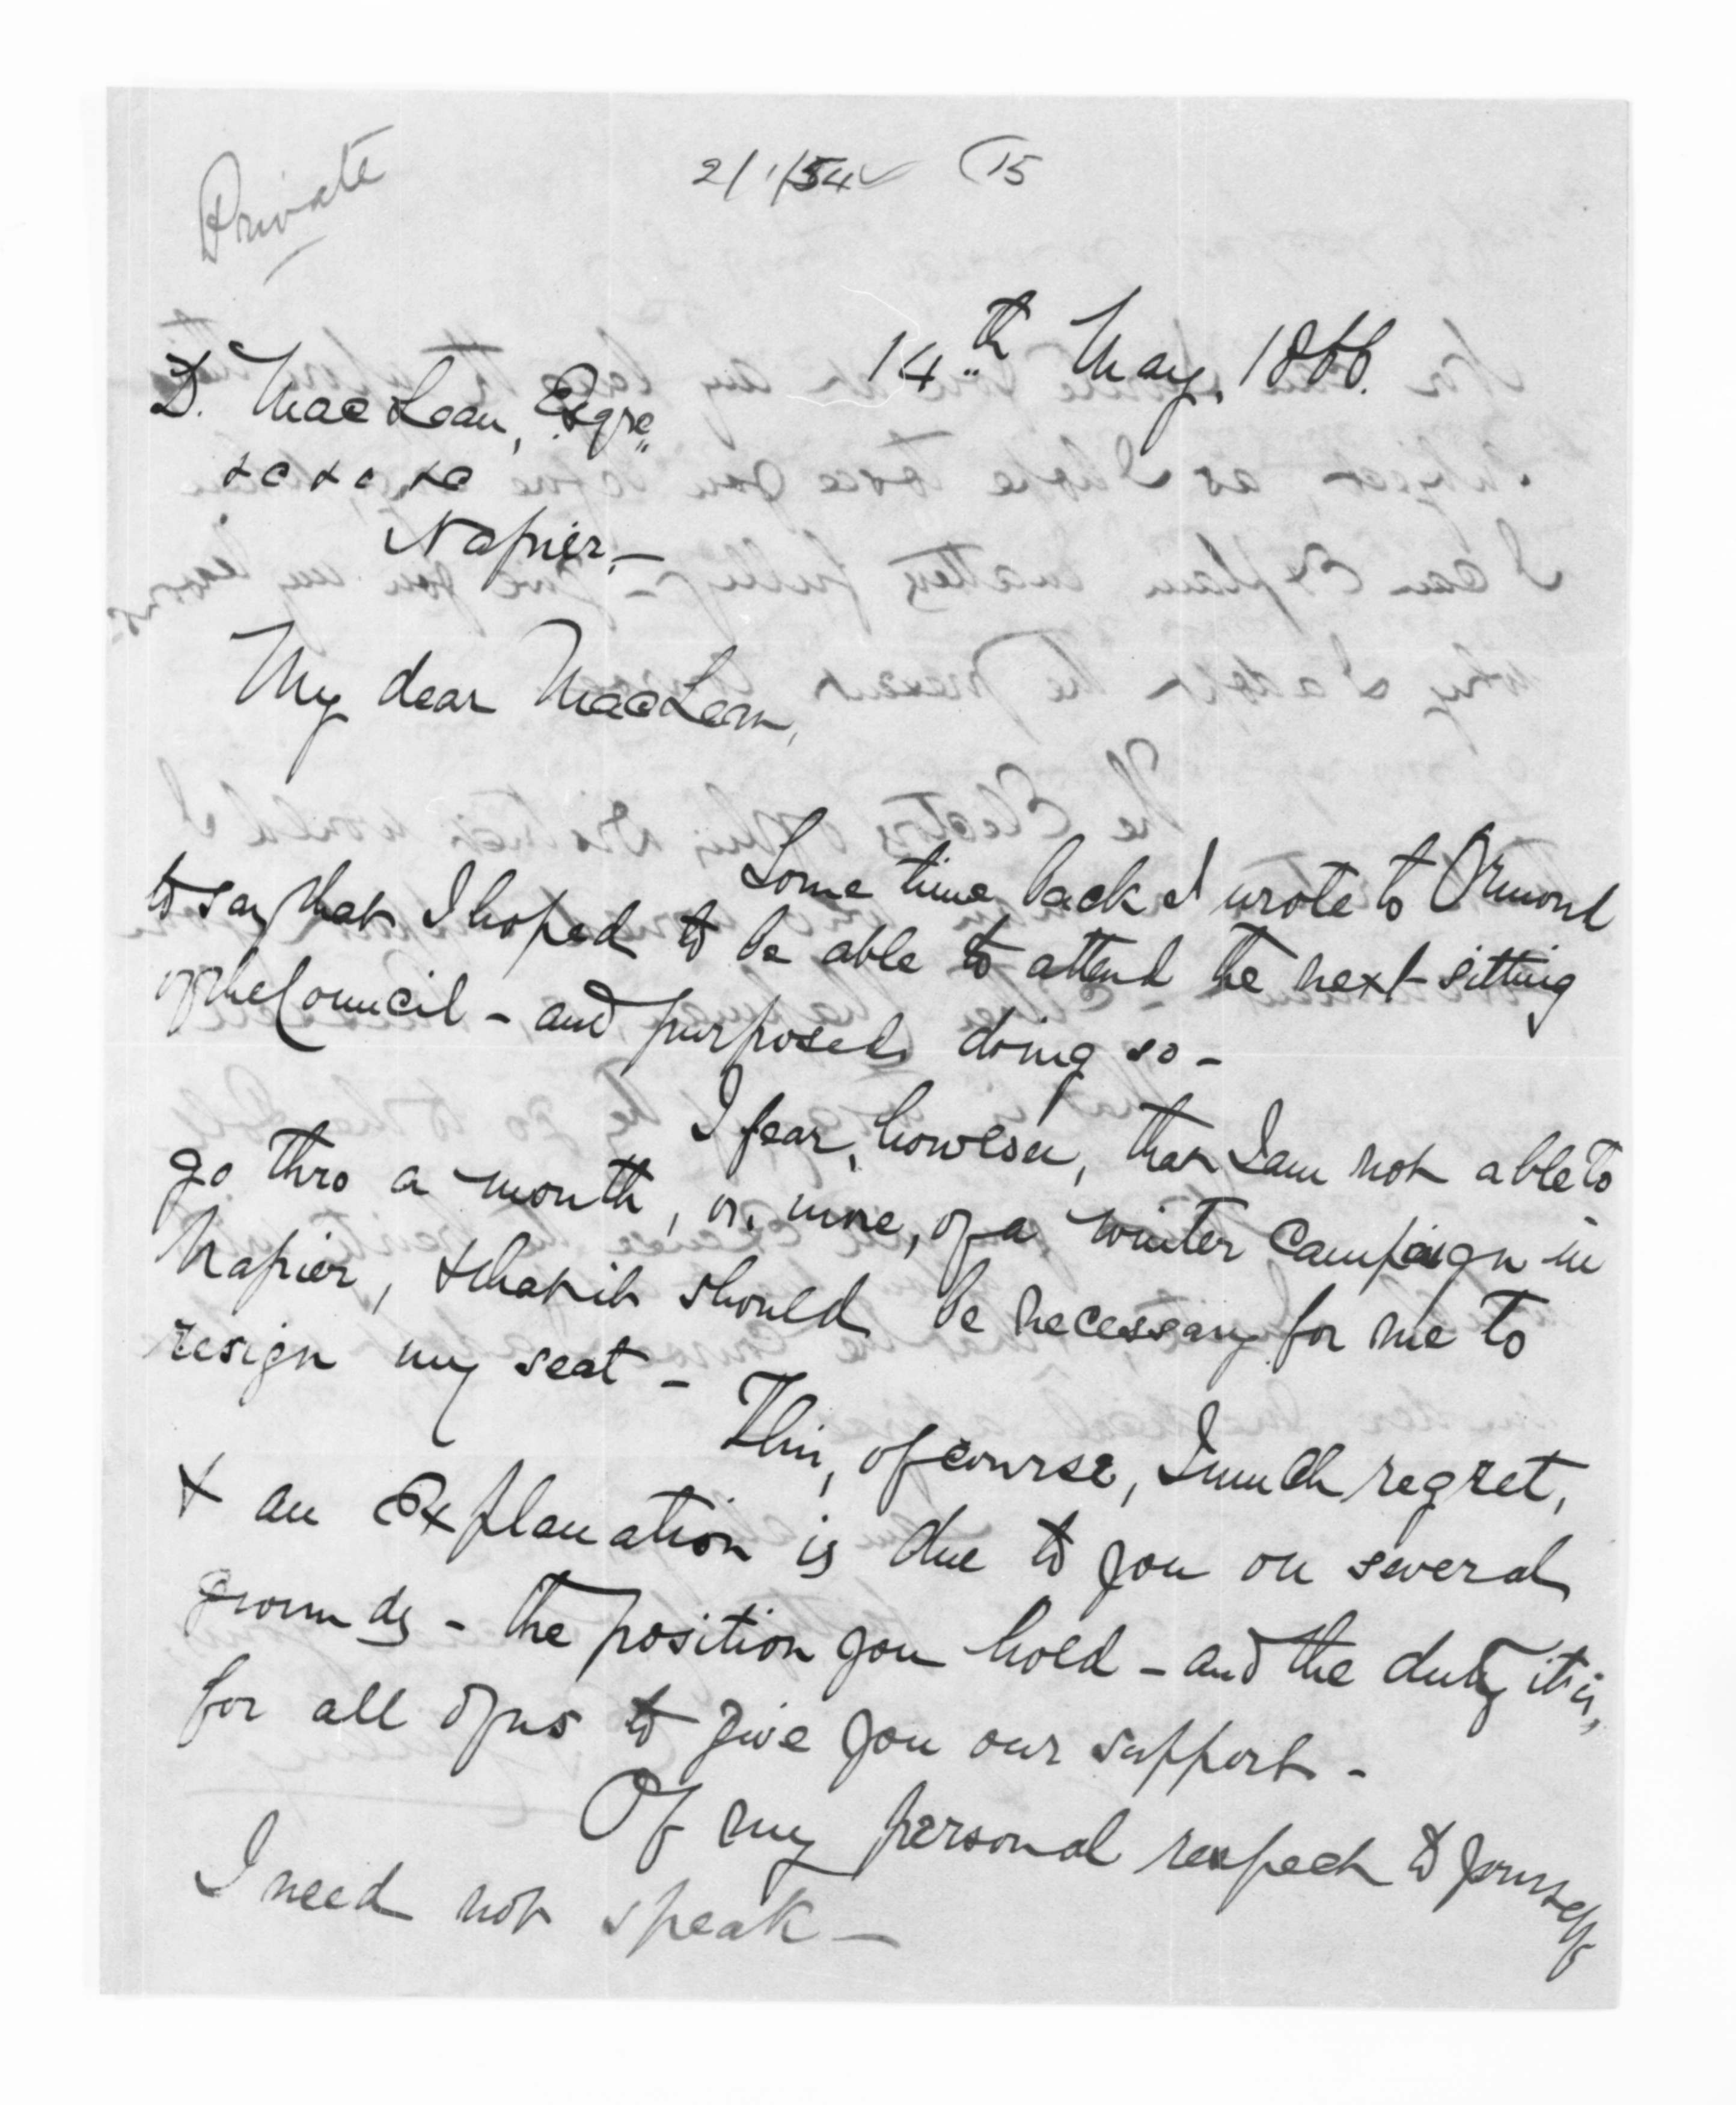 Private
2/1/54 (15
14th May. 1866.
D. MacLean, Esqre
&c &c &c
Napier.—
My dear MacLean,
Some time back I wrote to Ormond
to say that I hoped to be able to attend the next sitting
of the Council - and purposed doing so -
I fear, however, that I am not able to
go thro a month, or more, of a winter campaign in
Napier, & that it should be necessary for me to
resign my seat -
This, of course, I much regret,
& an Explanation is due to you on several
grounds - the position you hold - and the duty it is,
for all of us to give you our support -
Of my personal respect to yourself
I need not speak —